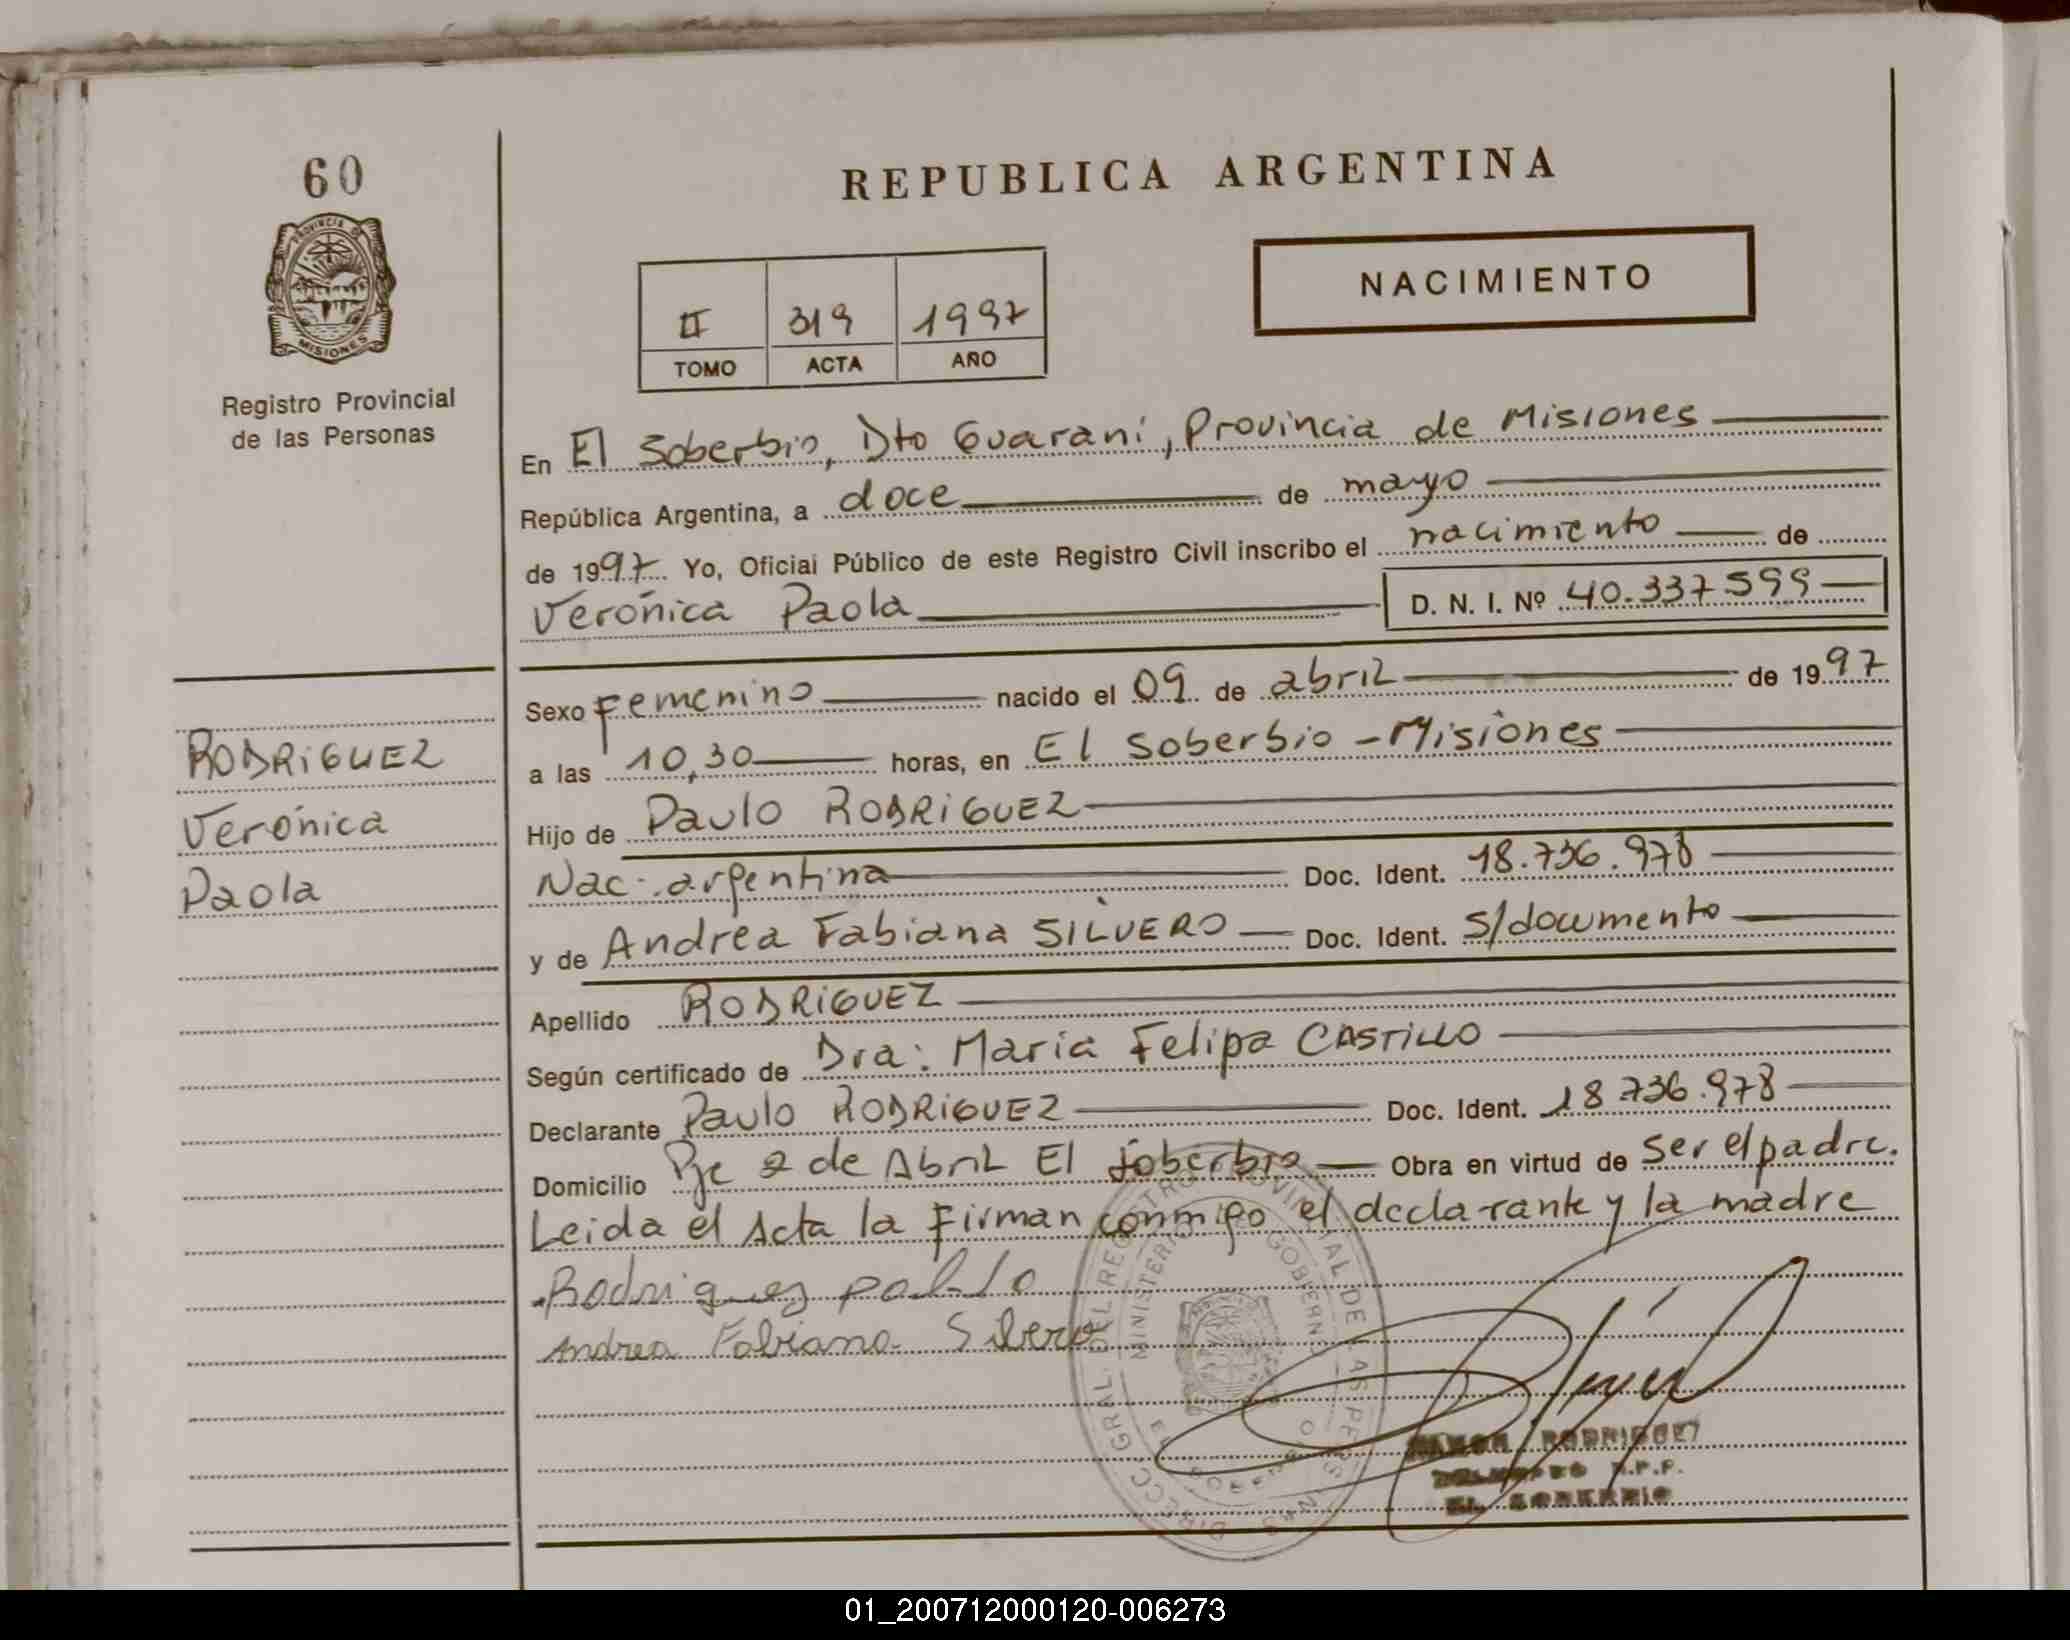 60
PROVINCIA DE
MISIONES
Registro Provincial
de las Personas
REPUBLICA ARGENTINA
NACIMIENTO
II 319 1997
TOMO ACTA AÑO
En El Soberbio, Dto Guaraní, Provincia de Misiones
República Argentina, a doce de mayo
de 1997. Yo, Oficial Público de este Registro Civil inscribo el nacimiento de
Verónica Paola D. N. I. Nº 40.337599
Sexo Femenino nacido el 09 de abril de 1997
a las 10,30 horas, en El Soberbio - Misiones
Hijo de Paulo RODRiGUEZ
Nac. argentina Doc. Ident. 18.736.978
y de Andrea Fabiana SILVERO Doc. Ident. s/documento
Apellido RODRiGUEZ
Según certificado de Dra: Maria Felipa CASTiLLO
Declarante Paulo RODRiGUEZ Doc. Ident. 18736.978
Domicilio Pje 2 de Abril El Soberbio Obra en virtud de ser el padre.
Leida el Acta la Firman conmigo el declarante y la madre
RODRiGUEZ
Verónica
Paola
Rodriguez pablo
Andrea Fabiana Silvero
DIRECC. GRAL. DEL REGISTRO PROVINCIAL DE LAS PERSONAS
MINISTERIO GOBIERNO
RAMON RODRIGUEZ
R.P.P.
EL SOBERBIO
01_200712000120-006273